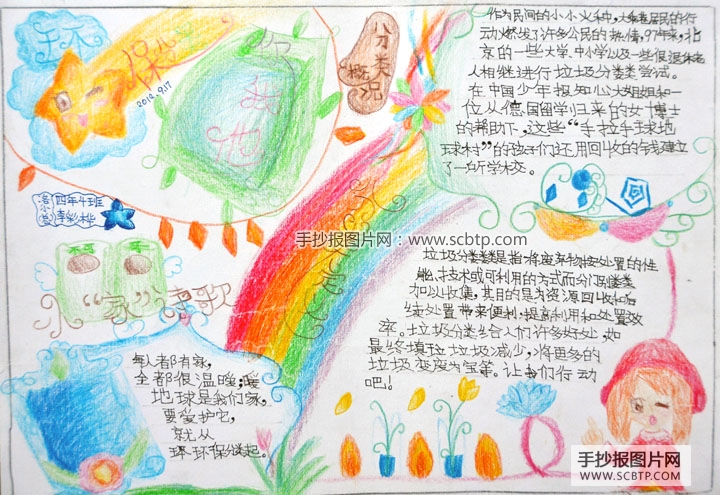 环保
2012.9.17
分类概况
作为民间的小小火种,大乘巷居民的行
动燃发了许多公民的热情,97年来,北
京的一些大学、中小学以及一些很
人相继进行垃圾分类类尝试。
在中国少年报知心大姐姐和一
位从德国留学归来的女博士
的帮助下,这些“手拉手球地
球村”的孩子们还用回收的钱建立
了一所学校。
四年4班
手抄报图片网:www.scbtp.com
不可
可
“家”诗歌
每人都有家,
全都很温暖;暖
地球是我们家,
要爱护它,
就从
环环保分类起。
垃圾分类类是指将废弃物按处置的性
能、技术或可利用的方式而分门别类类
加以收集,其目的是为资源回收和后
续处置带来便利,提高利用和处置效
率。垃圾分类给人们许多好处,如
最终填垃垃圾减少,将更多的
垃圾变废为宝等。让我们行动
吧!
手抄报图片网
WWW.SCBTP.COM